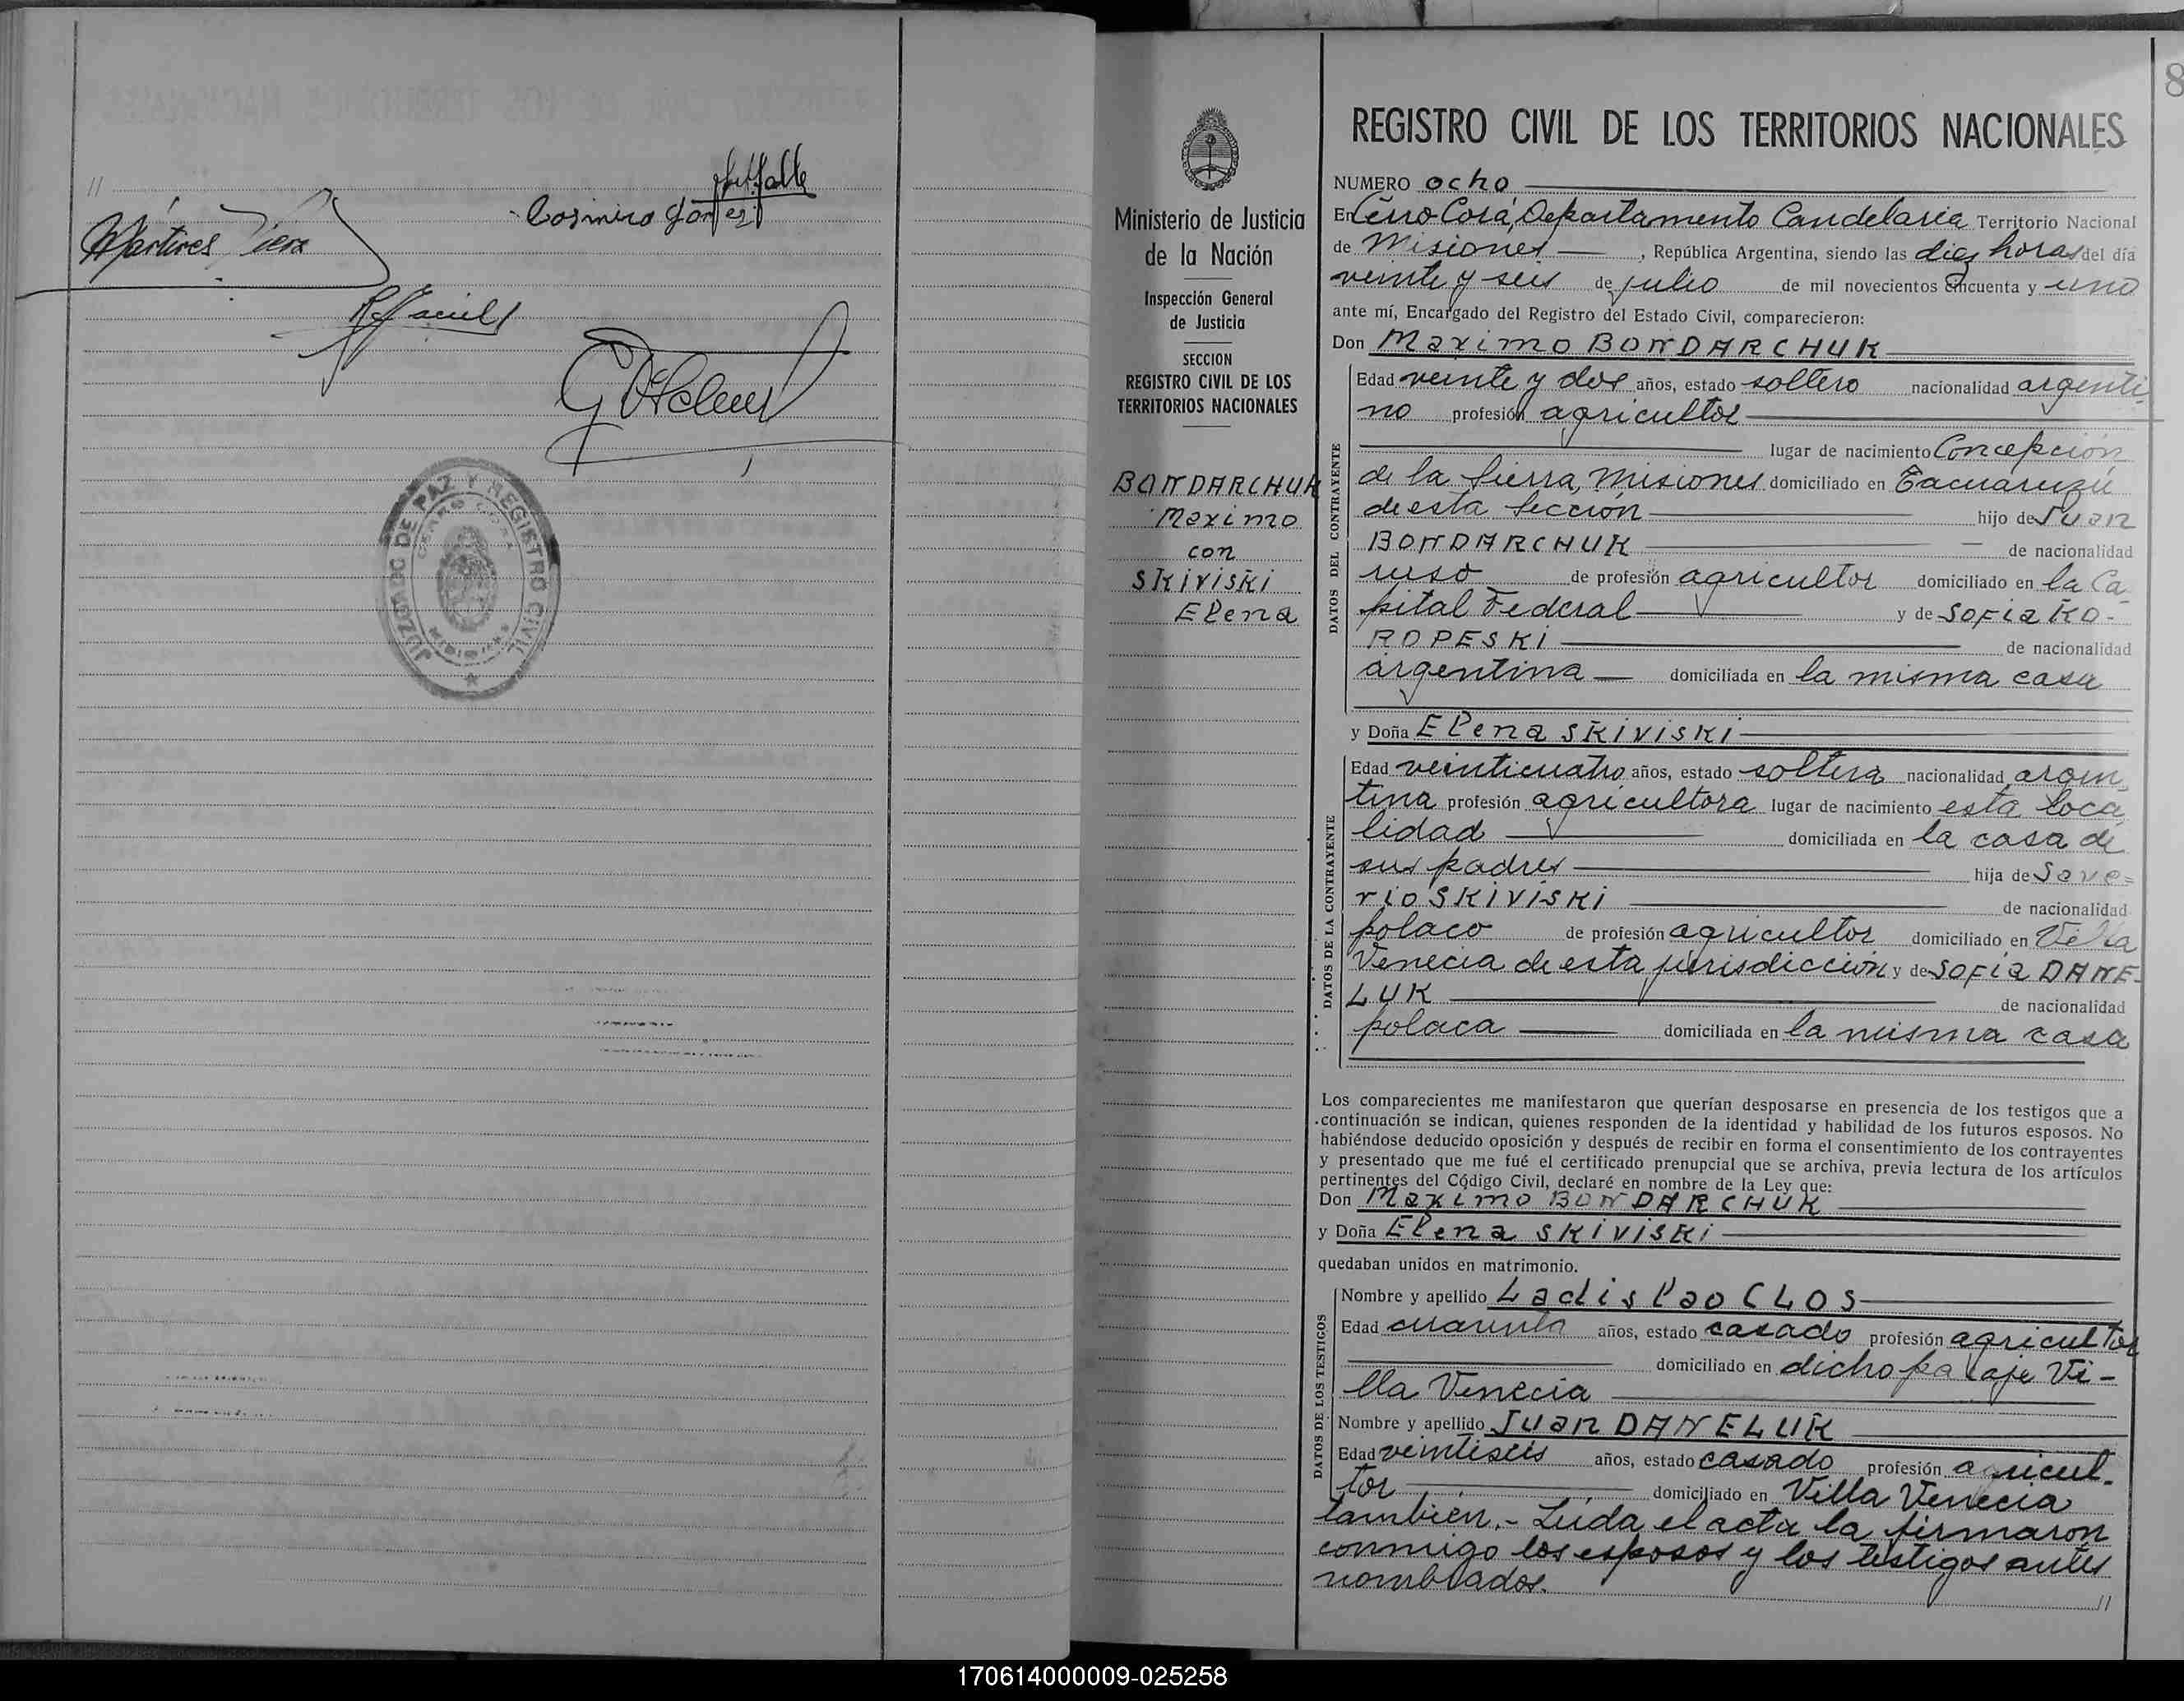 //
Casimiro
Martires Viera
JUZGADO DE PAZ Y REGISTRO CIVIL
CERRO CORÁ
MISIONES
8
REGISTRO CIVIL DE LOS TERRITORIOS NACIONALES
Ministerio de Justicia
de la Nación
Inspección General
de Justicia
SECCION
REGISTRO CIVIL DE LOS
TERRITORIOS NACIONALES
BONDARCHUK
Maximo
con
SKIVISKI
Elena
NUMERO ocho
En Cerro Corá, Departamento Candelaria Territorio Nacional
de Misiones, República Argentina, siendo las diez horas del día
veinte y seis de julio de mil novecientos cincuenta y uno
ante mí, Encargado del Registro del Estado Civil, comparecieron:
Don Maximo BONDARCHUK
DATOS DEL CONTRAYENTE
Edad veinte y dos años, estado soltero nacionalidad argenti
no profesión agricultor
lugar de nacimiento Concepción
de la Sierra, Misiones domiciliado en Tacuaruzú
de esta Sección hijo de Juan
BONDARCHUK de nacionalidad
ruso de profesión agricultor domiciliado en la Ca-
pital Federal y de SOFIA KO-
ROPESKI de nacionalidad
argentina domiciliada en la misma casa
y Doña Elena SKIVISKI
DATOS DE LA CONTRAYENTE
Edad veinticuatro años, estado soltera nacionalidad argen
tina profesión agricultora lugar de nacimiento esta loca
lidad domiciliada en la casa de
sus padres hija de Save=
rio SKIVISKI de nacionalidad
polaco de profesión agricultor domiciliado en Villa
Venecia de esta jurisdicción y de SOFIA DANE-
LUK de nacionalidad
polaca domiciliada en la misma casa
Los comparecientes me manifestaron que querían desposarse en presencia de los testigos que a
continuación se indican, quienes responden de la identidad y habilidad de los futuros esposos. No
habiéndose deducido oposición y después de recibir en forma el consentimiento de los contrayentes
y presentado que me fué el certificado prenupcial que se archiva, previa lectura de los artículos
pertinentes del Código Civil, declaré en nombre de la Ley que:
Don Maximo BONDARCHUK
y Doña Elena SKIVISKI
quedaban unidos en matrimonio.
DATOS DE LOS TESTIGOS
Nombre y apellido Ladislao CLOS
Edad cuarenta años, estado casado profesión agricultor
domiciliado en dicho paraje Vi-
lla Venecia
Nombre y apellido Juan DANELUK
Edad veintiseis años, estado casado profesión agricul-
tor domiciliado en Villa Venecia
también.- Leída el acta la firmaron
conmigo los esposos y los testigos antes
nombrados.
//
170614000009-025258